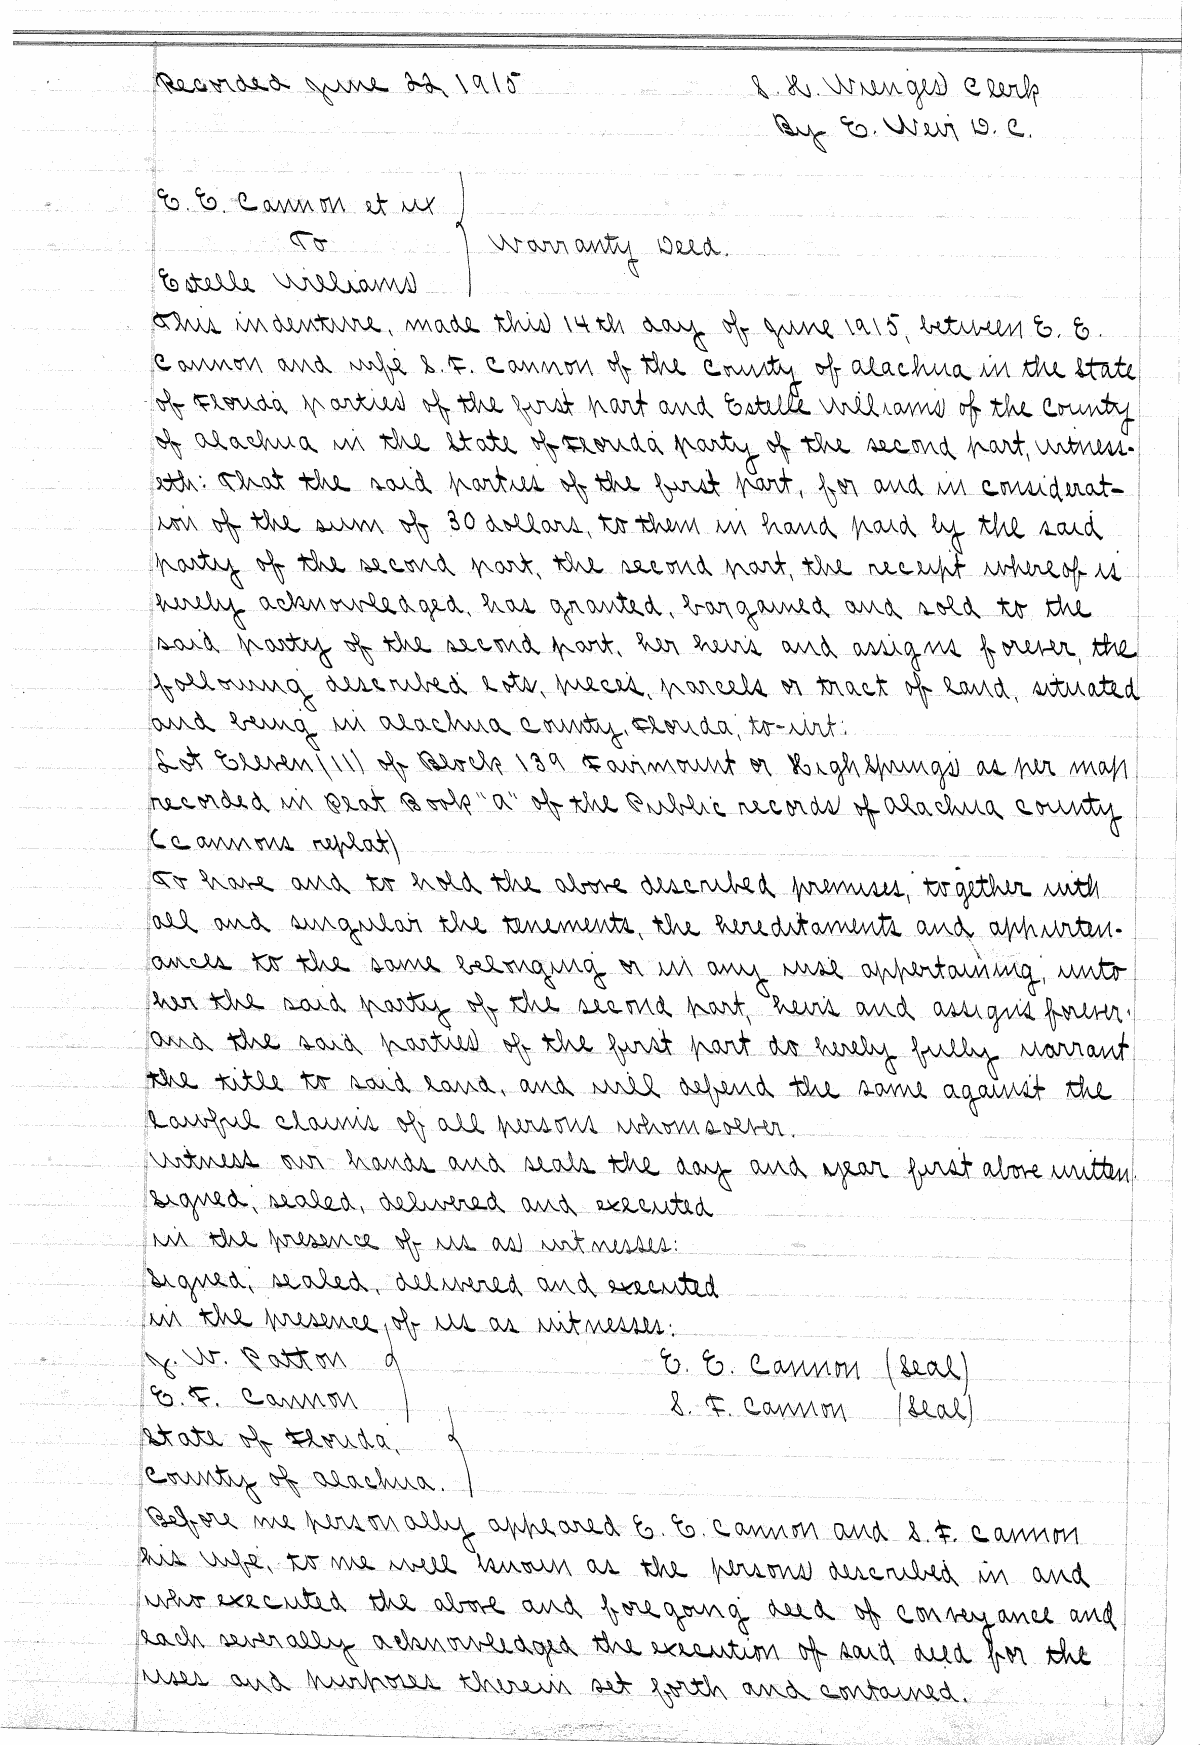 Recorded June 22, 1915 S. H. Wienges Clerk
By E. Weir D. C.
E. E. Cannon et ux
To Warranty Deed.
Estelle Williams
This indenture, made this 14th day of June 1915, between E. E.
Cannon and wife S. F. Cannon of the County of Alachua in the State
of Florida parties of the first part and Estelle Williams of the County
of Alachua in the State of Florida party of the second part, witness-
eth: That the said parties of the first part, for and in considerat-
ion of the sum of 30 dollars, to them in hand paid by the said
party of the second part, the second part, the receipt whereof is
hereby acknowledged, has granted, bargained and sold to the
said party of the second part, her heirs and assigns forever, the
following described lots, pieces, parcels or tract of land, situated
and being in Alachua County, Florida, to-wit:
Lot Eleven (11) of Block 139 Fairmount or High Springs as per map
recorded in Plat Book "A" of the Public records of Alachua County
(Cannons replat)
To have and to hold the above described premises, together with
all and singular the tenements, the hereditaments and appurten-
ances to the same belonging or in any wise appertaining, unto
her the said party of the second part, heirs and assigns forever.
And the said parties of the first part do hereby fully warrant
the title to said land, and will defend the same against the
lawful claims of all persons whomsoever.
Witness our hands and seals the day and year first above written.
Signed, sealed, delivered and executed
in the presence of us as witnesses:
Signed, sealed, delivered and executed
in the presence, of us as witnesses:
J. W. Patton E. E. Cannon (Seal)
E. F. Cannon S. F. Cannon (Seal)
State of Florida,
County of Alachua.
Before me personally appeared E. E. Cannon and S. F. Cannon
his wife, to me well known as the persons described in and
who executed the above and foregoing deed of conveyance and
each severally acknowledged the execution of said deed for the
uses and purposes therein set forth and contained.